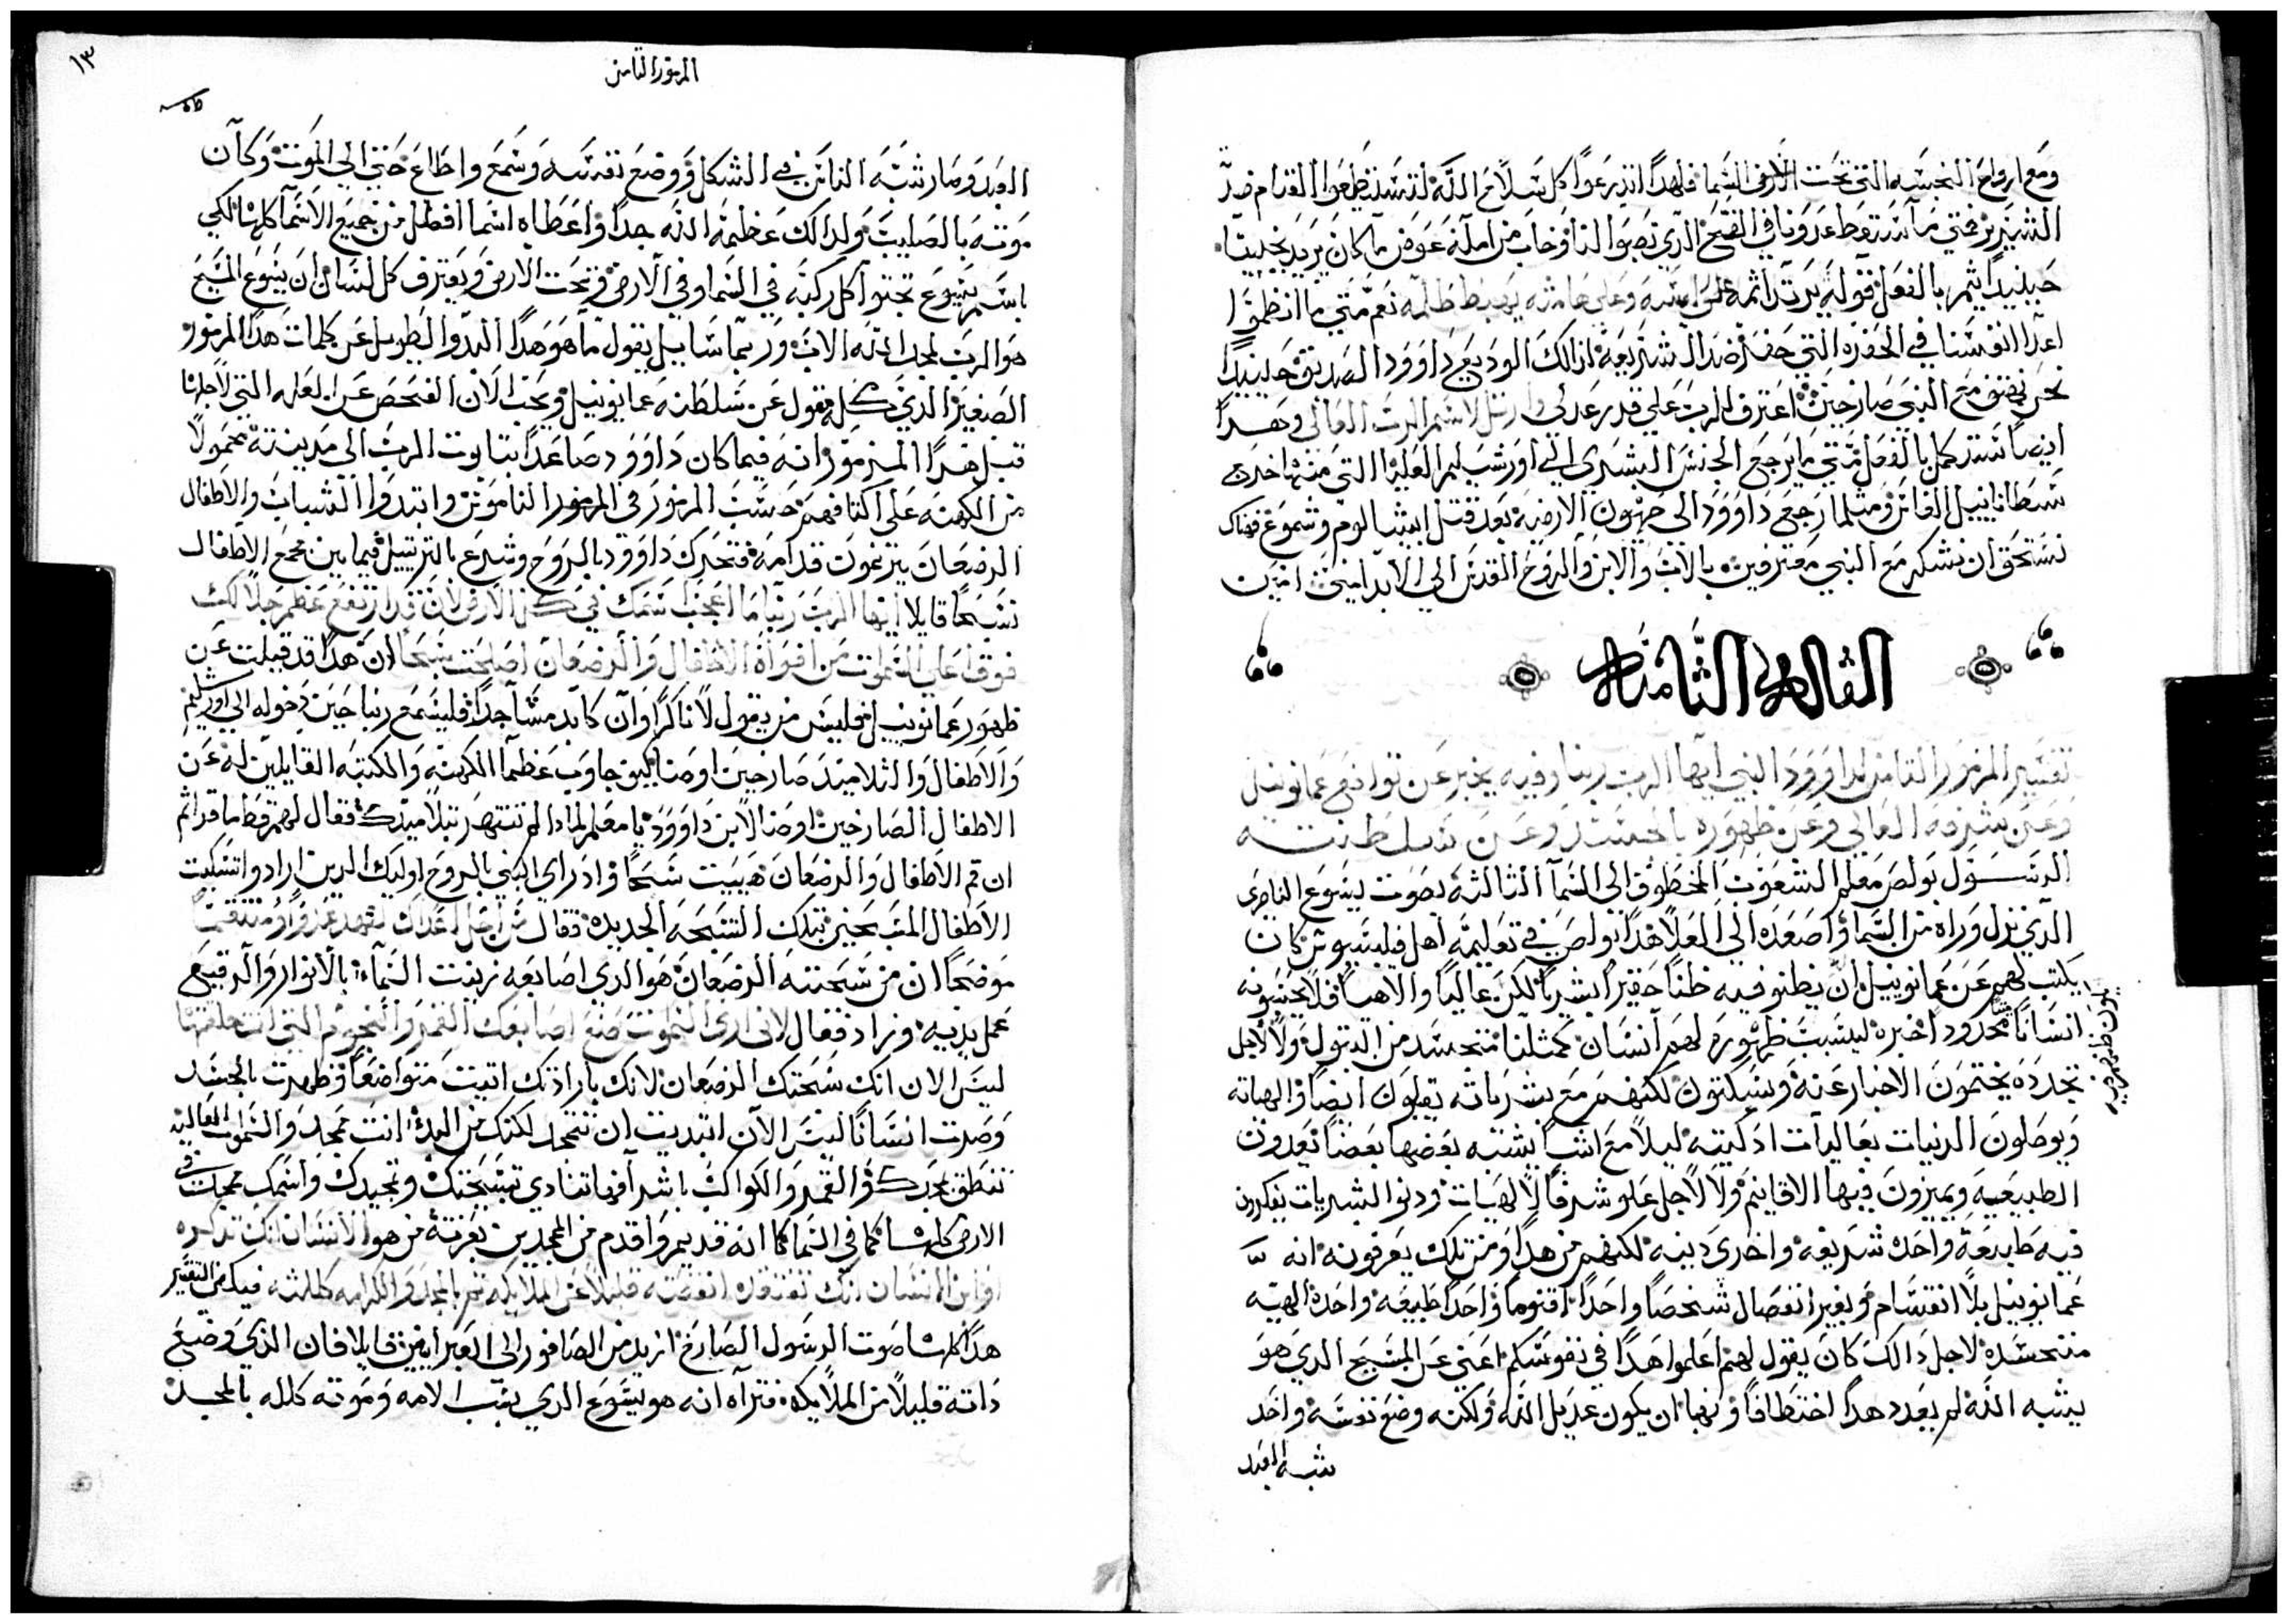 ومع ارواح النجسه التي تحت السما فلهدا اتدرعوا كل سلاح الله لتستطيعوا القيام ضد
الشرير فحتي ما سقط عدونا في الفخ الدي نصبوا لنا وخاب من امله عوض ما كان يريد يخيبنا
حينيد يتم بالفعل قوله يرتد اثمه علي راسه وعلي هامته يهبط ظلمه نعم متي ما انظموا
اعدا انفسنا في الحفره التي حفر ضد الشريعه لدلك الوديع داوود الصديق حينيدا
نحن نهتف مع النبي صارخين اعترف للرب علي قدر عدله وارتل لاسم الرب العالي وهدا
ايضا ستكمل بالفعل متي ما يرجع الجنس البشري الي اورشليم العليا التي منها اخدت
سلطانا نييل الفاتن ومثلما رجع داوود الي صهيون الارضيه بعد قتل ابيشالوم وشموع فهناك
نستحق ان نشكر مع النبي معترفين بالاب والابن والروح القدس الي الابد امين امين
المقاله الثامنه
تفسير المزمور الثامن لداوود النبي ايها الرب ربنا وفيه يخبر عن تواضع عمانوييل
وعن شرفه العالي وعن ظهوره بالجسد وعن سلطنته
الرسول بولص معلم الشعوب المخطوف الي السما الثالثه بصوت يسوع الناصري
الدي نزل وراه من السما واصعده الي العلا هدا بولص في تعليمه اهل فيلبسيوس كان
يكتب لهم عن عمانوييل ان يظنو فيه ظنا حقيرا بشريا لكن عاليا والاهيا فلا يحسبونه
انسانا محدود اخيره لبسبب ظهوره لهم انسان كمثلنا متجسد من البتول ولا لاجل
تجدده يختمون الاخبار عنه ويسكتون لكنهم مع بشرياته يقبلون ايضا والهياته
ويوصلون الدنيات بعاليات ادكيته ليلا مع اشيا يشته بعضها بعضا يعدون
الطبيعيه ويميزون فيها الاقانيم ولا لاجل علو شرف الالهيات ودنو البشريات يفكرون
فيه طبيعه واحده شريفه واخري دينه لكنهم من هدا ومن تلك يعرفونه انه
عمانوييل بلا انقسام وبغير انفصال شخصا واحدا اقنوما واحدا طبيعه واحده الهيه
متجسده لاجل دالك كان يقول لهم اعلموا هدا في نفوسكم اعني عن المسيح الدي هو
يشبه الله لم يعدد هدا اختطافا ونهبا ان يكون عديل الله ولكنه وضع نفسه واخد
شبه العبد
١٣
المزمور الثامن
العبد وصار شبه الناس في الشكل ووضع نفسه وسمع واطاع حتي الي الموت وكان
موته بالصليب ولدالك عظيمه الله جدا واعطاه اسما افضل من جميع الاسما كلها لكي
باسم يسوع تجتو كل ركبه في السما وفي الارض وتحت الارض ويعترف كل لسان ان يسوع المسيح
هو الرب لمجد الله الاب وربما سايل يقول ما هو هدا البدو الطويل عن كلمات هدا المزمور
الصغير الدي كله مقول عن سلطنه عمانوييل ويجب الان الفحص عن العله التي لاجلها
قيل هدا المزمور انه فيما كان داوود صاعدا بتابوت الرب الي مدينته محمولا
من الكهنه علي اكتافهم حسب المرموز في المزمور الناموس وابتدوا الشباب والاطفال
الرضعان يترنمون قدامه فتحرك داوود بالروح وشرع بالترتيل فيما بين مجمع الاطفال
نسبحا قايلا ايها الرب ربنا ما اعجب اسمك في كل الارض لان قد ارتفع عظم جلالك
فوق اعلي السموات من افواه الاطفال والرضعان اصلحت سبحا ان هدا قد قيلت عن
ظهور عمانوييل فليس من يقول لا ناكرا وان كابد مشاجدا فليسمع ربنا حين دخوله الي اورشليم
والاطفال والتلاميد صارخين اوصنا ليق جاوب عظما الكهنه والكتبه القايلين له عن
الاطفال الصارخين اوصنا لابن داوود يا معلم لمادا لم تنتهر تلاميدك فقال لهم قط ما قراتم
ان فم الاطفال والرضعان هييت سبحا وادراي النبي بالروح اوليك الدين ارادو اتسكيت
الاطفال المسبحين بتلك التسبحه الجديده فقال من اجل اعداك لتهدم عدوا ومنتقما
موضحا ان من سبحته الرضعان هو الدي اصابعه زينت السماء بالانوار والرقيع
عمل يديه وزاد فقال لاني اري السموات صنع اصابعك القمر والنجوم التي انت خلقتها
ليس الان انك سبحتك الرضعان لانك بارادتك اتيت متواضعا وظهرت بالجسد
وصرت انسانا ليس الان ابتديت ان تتمجد لكنك من البدء انت ممجد والسموات العاليه
تنطق بمجدك والقمر والكواكب باشراقها تنادي تسبحتك وتمجيدك واسمك ممجد في
الارض كلها كما في السما كما انه قديم واقدم من الممجدين بعزته من هو الانسان انك تدكره
او ابن الانسان انك تفتقده انقصته قليلا عن الملايكه ثم بالمجد والكرامه كللته فيكفي التفسير
هدا كله صوت الرسول الصارخ ازيد من الصافور الي العبرانيين قايلا فان الدي وضع
داته قليلا من الملايكه فنراه انه هو يسوع الدي بسبب الامه وموته كلل بالمجد